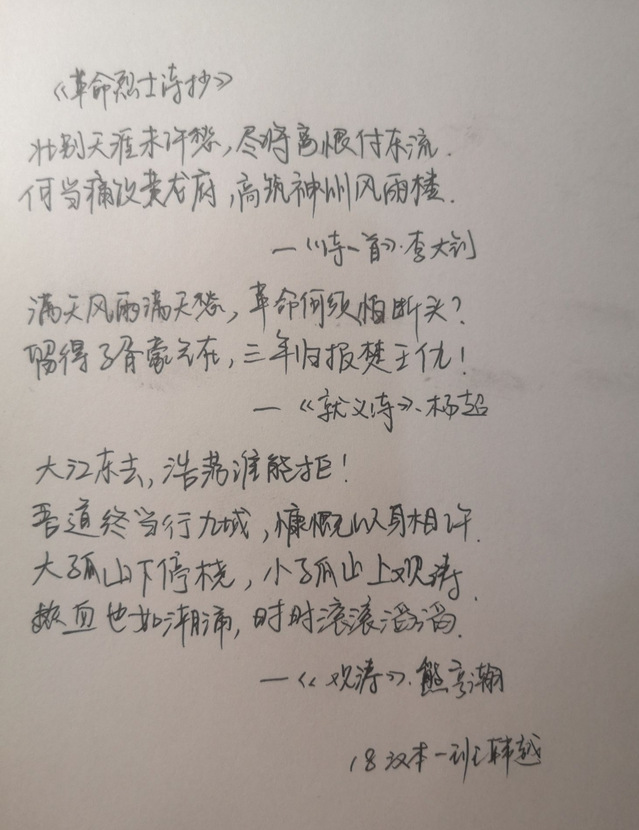 《革命烈士诗抄》
壮别天涯未许愁，尽将离恨付东流．
何当痛饮黄龙府，高筑神州风雨楼．
—《诗一首》·李大钊
满天风雨满天愁，革命何须怕断头？
留得子胥豪气在，三年归报楚王仇！
—《就义诗》·杨超
大江东去，浩荡谁能拒！
吾道终当行九域，慷慨以身相许．
大孤山下停桡，小孤山上观涛．
热血也如潮涌，时时滚滚滔滔．
—《观涛》·熊亨瀚
18汉本一班韩越